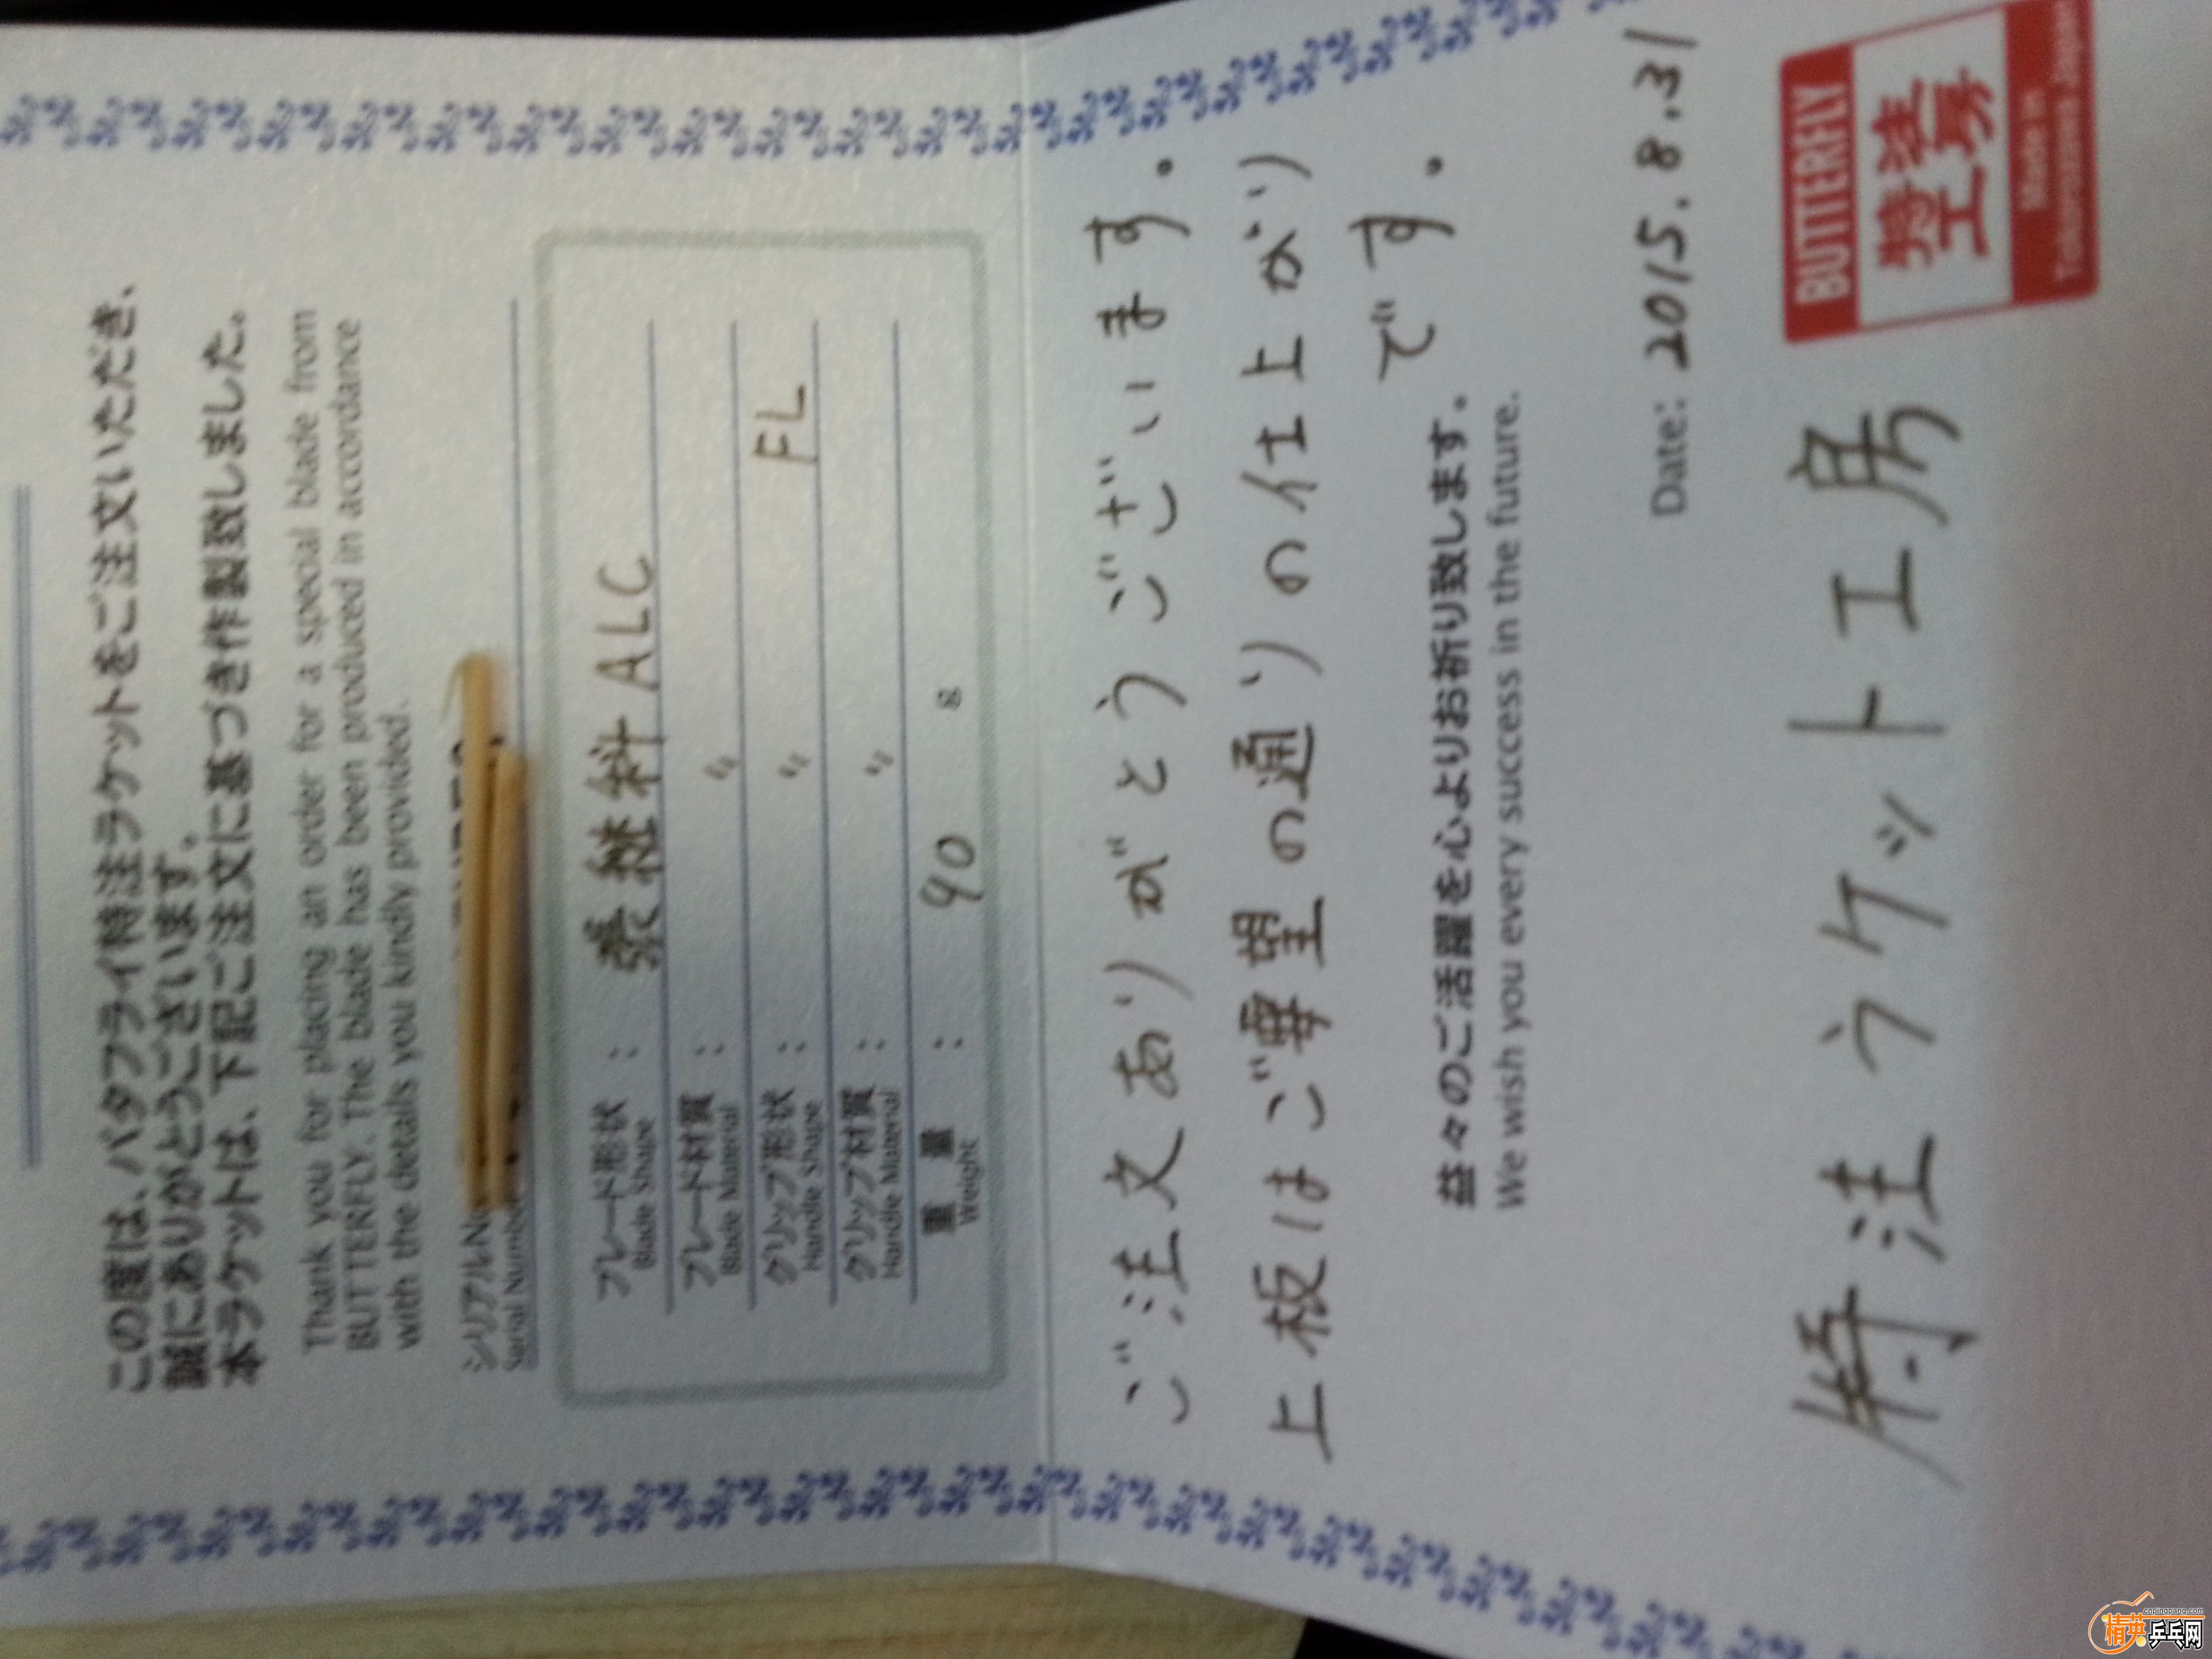 この度は、バタフライ特注ラケットをご注文いただき、
誠にありがとうございます。
本ラケットは、下記ご注文に基づき作製致しました。
Thank you for placing an order for a special blade from
BUTTERFLY. The blade has been produced in accordance
with the details you kindly provided.
シリアルNo
Serial Numbe
ブレード形状 : 張継科 ALC
Blade Shape
ブレード材質 : 〃
Blade Material
グリップ形状 : 〃 FL
Handle Shape
グリップ材質 : 〃
Handle Material
重量 : 90 g
Weight
ご注文ありがとうございます。
上板はご要望の通りの仕上がり
です。
益々のご活躍を心よりお祈り致します。
We wish you every success in the future.
Date: 2015.8.31
特注ラケット工房
BUTTERFLY
特注
工房
Made in
Tokorozawa Japan
copingpang.com
精英乒乓网